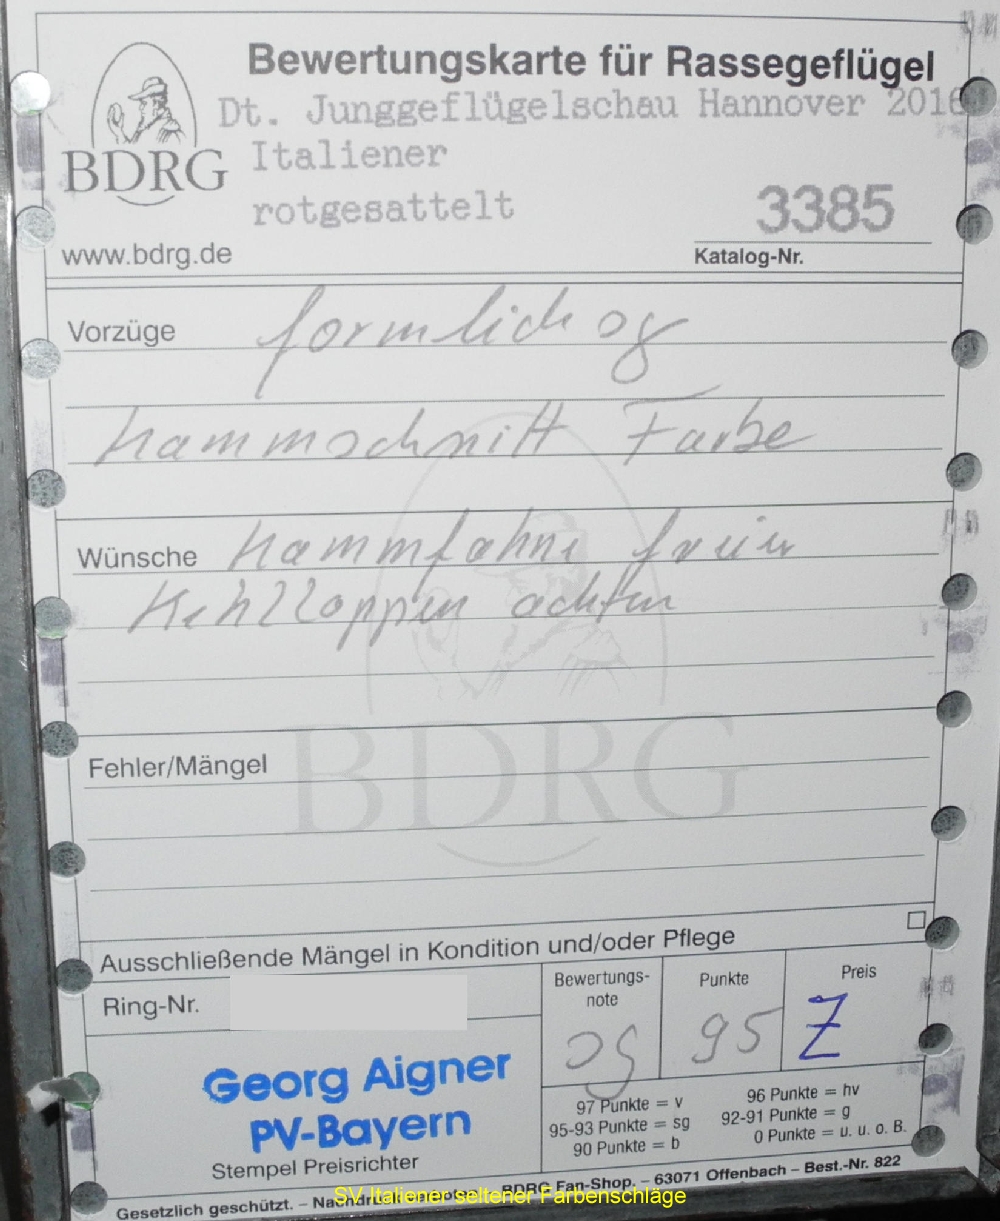 Bewertungskarte für Rassegeflügel
Dt. Junggeflügelschau Hannover 2016
BDRG
Italiener
rotgesattelt
3385
www.bdrg.de
Katalog-Nr.
Vorzüge formlich sg
Kammschnitt Farbe
Wünsche Kammfahne freier
Kehllappen achten
BDRG
Fehler/Mängel
Ausschließende Mängel in Kondition und/oder Pflege
Ring-Nr.
Bewertungs-
note
Punkte
Preis
sg
95
Z
Georg Aigner
PV-Bayern
Stempel Preisrichter
97 Punkte = v
96 Punkte = hv
95-93 Punkte = sg
92-91 Punkte = g
90 Punkte = b
0 Punkte = u. u. o. B.
Gesetzlich geschützt. – BDRG Fan-Shop. – 63071 Offenbach – Best.-Nr. 822
SV Italiener seltener Farbenschläge